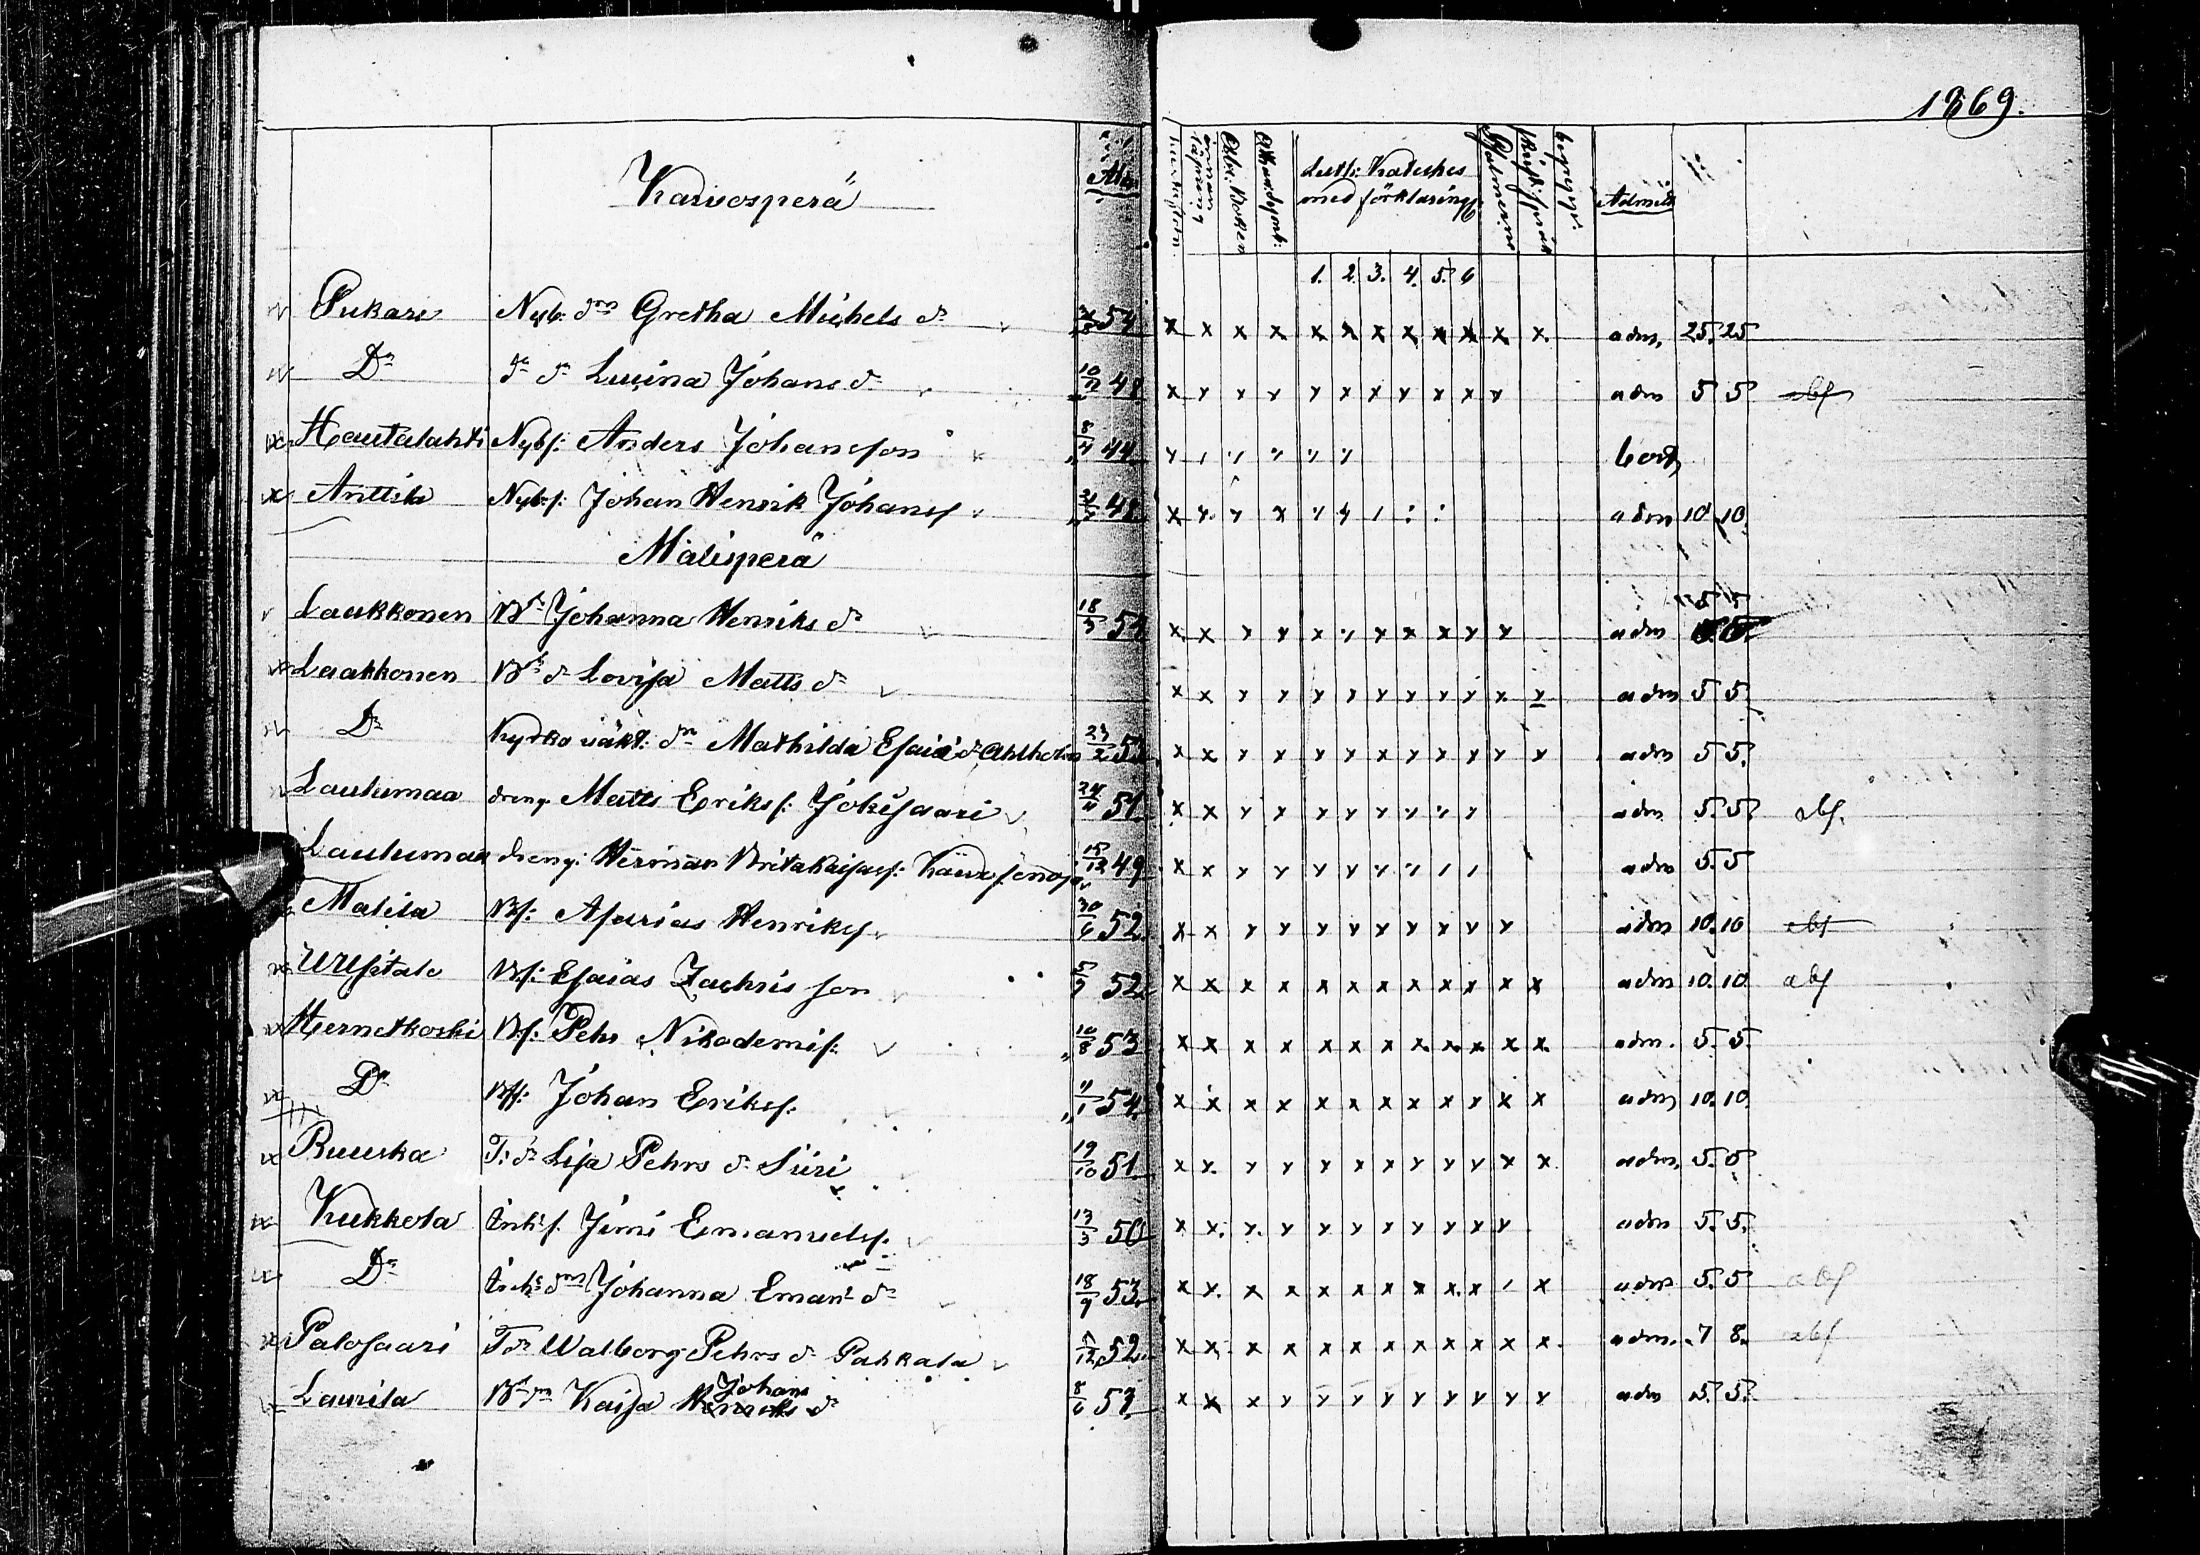 1869.
Karvosperä
Ålder
innan läsning
Abc: Boken
Athan: symb:
Luth: Kateches med förklaring
Psalmerne
skrift: språk
begrepp:
Admitt
1. 2. 3. 4. 5. 6
Pukari Nyb: dr Gretha Michels dr 54 x x x x x x x x x x x x adm. 25. 25
Dr dr dr Lucina Johans dr 10/12 48 x x x x x x x x x x x adm 5 5 abs
Hautalahti Nybs: Anders Johansson 8/4 44 bort
Anttila Nybs: Johan Henrik Johanss 48 adm 10. 10.
Malisperä
Laukkonen Bdr Johanna Henriks dr 18/3 54 x x x x x x x x x x x adm 5 5
Laakkonen Bdr dr Lovisa Matts dr x x x x x x x x x x x x adm 5 5.
Dr Kyrko väkt: dr Mathilda Esaiæ dr Ahlholm 23/2 53 x x x x x x x x x x x x adm 5 5.
Laulumaa dreng Matts Erikss: Jokisaari 24/11 51. x x x x x x x x x x adm 5. 5. abs.
Laulumaa dreng: Herman Brita Kaisas: 15/12 49 adm 5. 5
Malila Bs: Asarias Henrikss. 30/6 52 x x x x x x x x x x x adm 10. 10 abs
Uusitalo Bs: Esaias Zachris son 5/7 52. x x x x x x x x x x x x adm 10. 10 abs
Hernetkoski Bs: Pehr Nikodemis: 10/8 53 x x x x x x x x x x x x adm. 5. 5.
Dr Bss: Johan Erikss: 11/1 54. x x x x x x x x x x x x adm 10. 10.
Ruuska T: dr Lisa Pehrs dr Siiri 19/10 51. x x x x x x x x x x x x adm. 5. 5
Kukkola Inh: s. Jimi Emanuelss. 13/3 50 x x x x x x x x x x x adm 5. 5.
Dr Inh: dr Johanna Eman: dr 18/9 53. x x x x x x x x x x / x adm 5. 5 abs
Palosaari T dr Walborg Pehrs dr Pahkala 5/12 52. x x x x x x x x x x x x adm. 7 8. abs
Johans
Laurila B dr Kaisa Henriks dr 8/6 53. x x x x x x x x x x x x adm 5. 5.